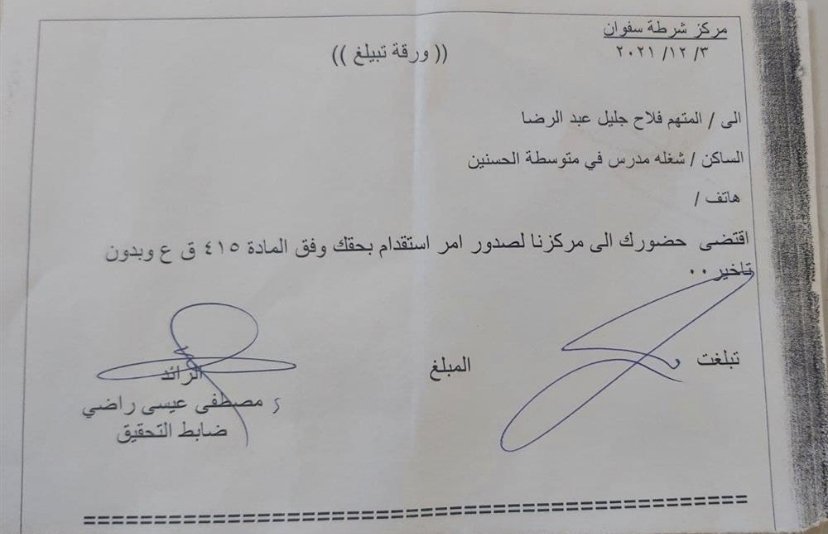 مركز شرطة سفوان
٣/ ١٢/ ٢٠٢١
(( ورقة تبيلغ ))
الى / المتهم فلاح جليل عبد الرضا
الساكن / شغله مدرس في متوسطة الحسنين
هاتف /
اقتضى حضورك الى مركزنا لصدور امر استقدام بحقك وفق المادة ٤١٥ ق ع وبدون
تاخير ٠٠
تبلغت
المبلغ
الرائد
مصطفى عيسى راضي
ضابط التحقيق